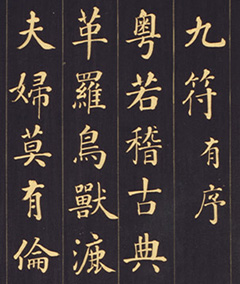 九符有序
粵若稽古典
革羅鳥獸
夫婦莫有倫